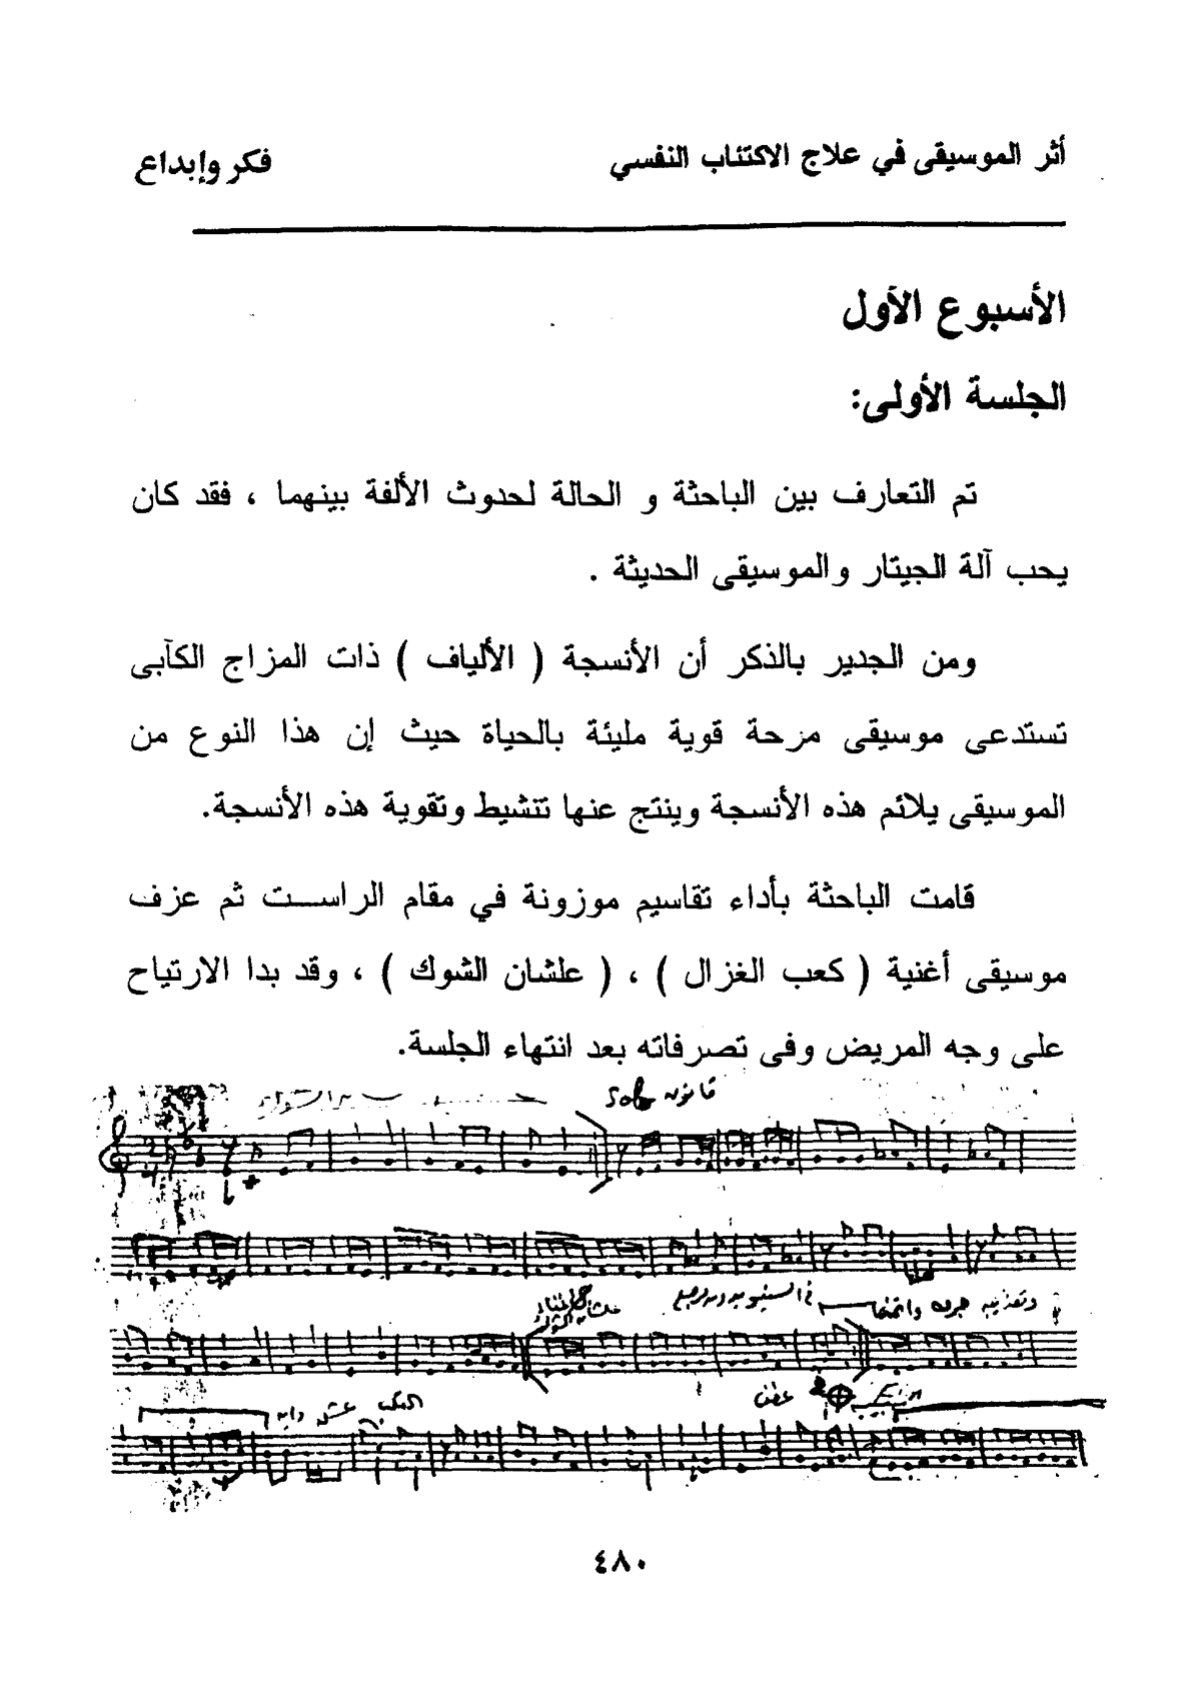 أثر الموسيقى في علاج الاكتئاب النفسي
فكر وإبداع
الأسبوع الأول
الجلسة الأولى:
تم التعارف بين الباحثة و الحالة لحدوث الألفة بينهما ، فقد كان
يحب آلة الجيتار والموسيقى الحديثة .
ومن الجدير بالذكر أن الأنسجة ( الألياف ) ذات المزاج الكآبى
تستدعى موسيقى مرحة قوية مليئة بالحياة حيث إن هذا النوع من
الموسيقى يلائم هذه الأنسجة وينتج عنها تنشيط وتقوية هذه الأنسجة.
قامت الباحثة بأداء تقاسيم موزونة في مقام الراست ثم عزف
موسيقى أغنية ( كعب الغزال ) ، ( علشان الشوك ) ، وقد بدا الارتياح
على وجه المريض وفى تصرفاته بعد انتهاء الجلسة.
قانون Solo
٤٨٠